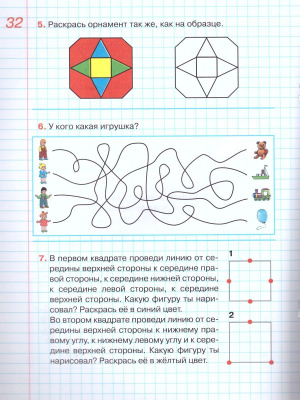 32
5. Раскрась орнамент так же, как на образце.
6. У кого какая игрушка?
7. В первом квадрате проведи линию от се-
редины верхней стороны к середине пра-
вой стороны, к середине нижней стороны,
к середине левой стороны, к середине
верхней стороны. Какую фигуру ты нари-
совал? Раскрась её в синий цвет.
Во втором квадрате проведи линию от се-
редины верхней стороны к нижнему пра-
вому углу, к нижнему левому углу и к сере-
дине верхней стороны. Какую фигуру ты
нарисовал? Раскрась её в жёлтый цвет.
1
2